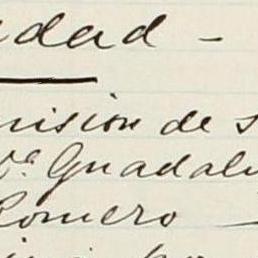 dad -
nision de s
Va Guadalu
Romero -